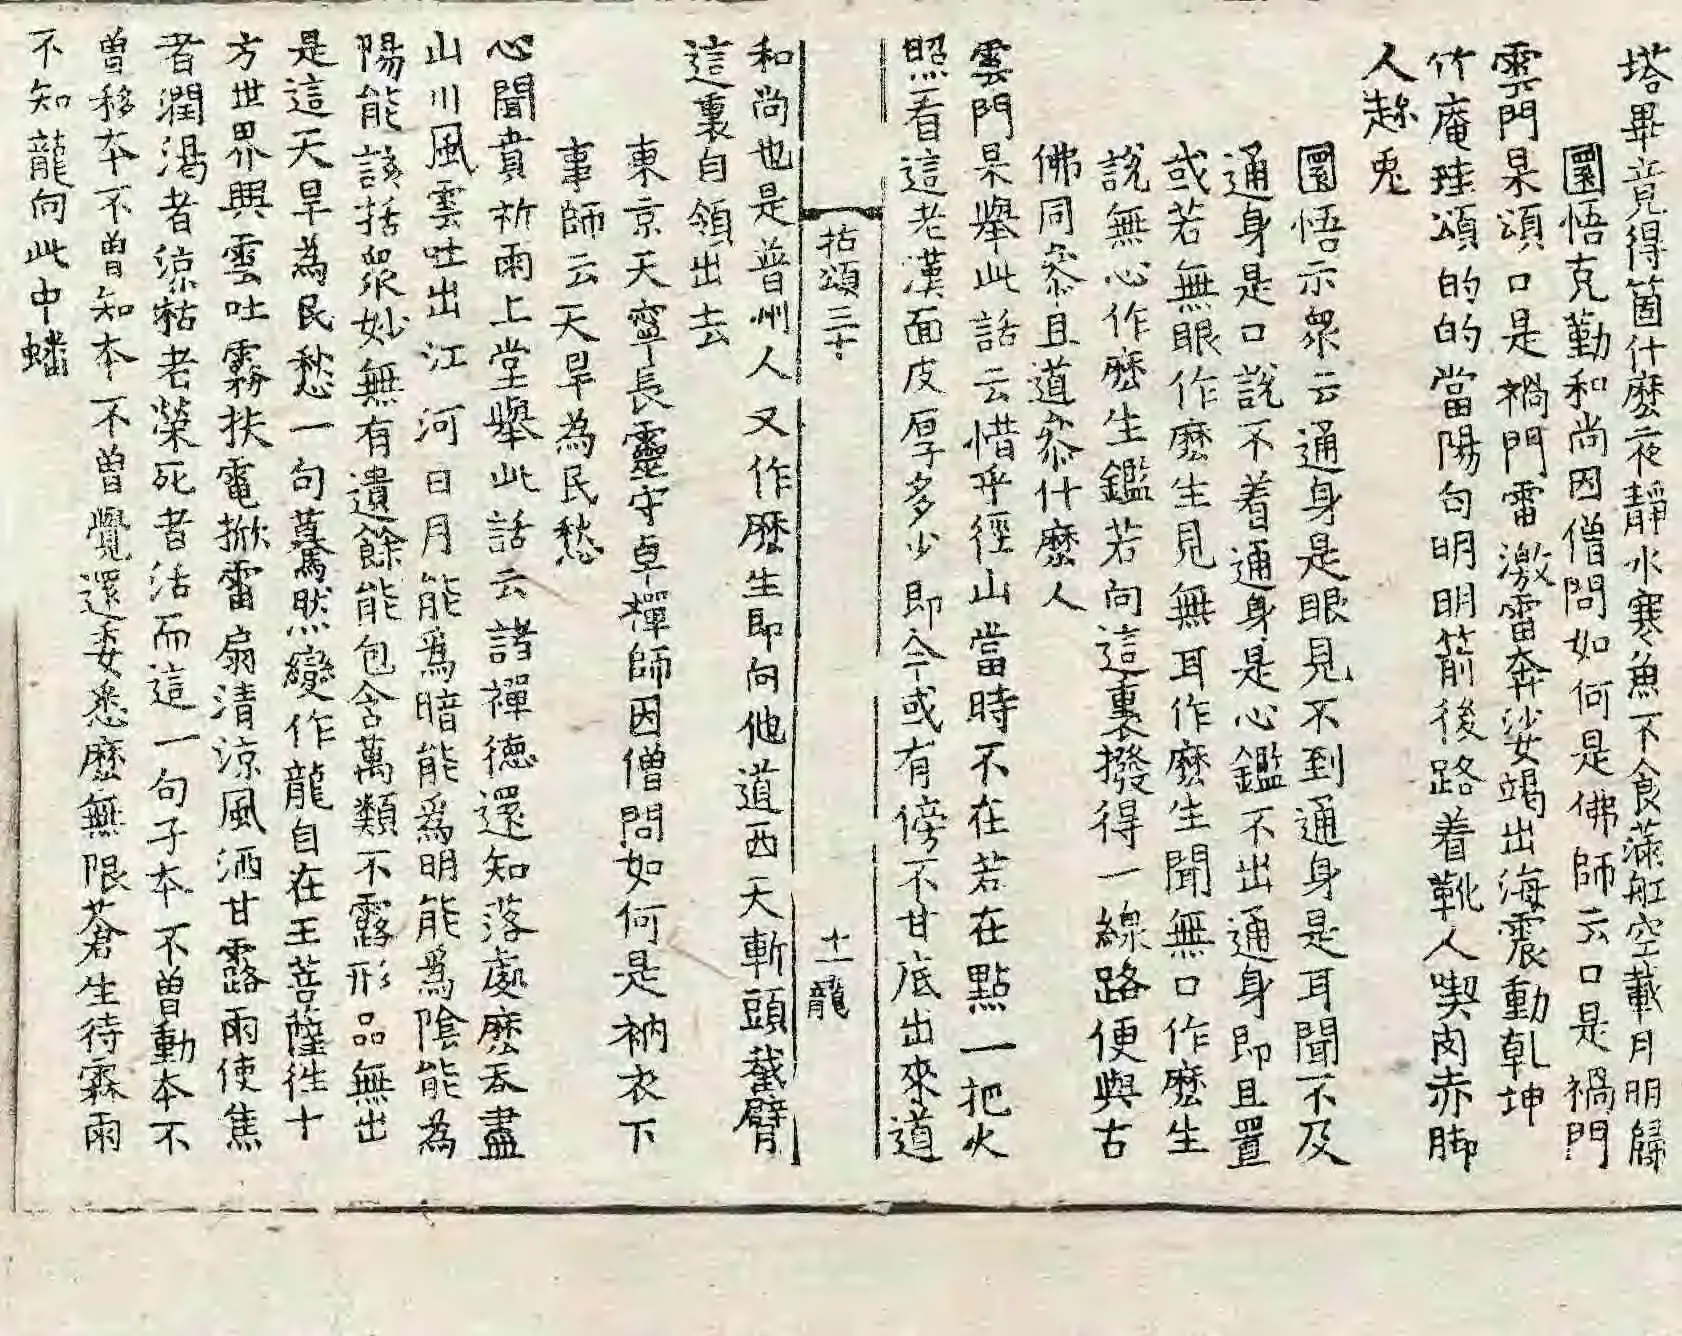 塔畢竟得箇什麽夜靜水寒魚不食滿舡空載月明歸
圜悟克勤和尚因僧問如何是佛師云口是禍門
雲門杲頌口是禍門雷激雷奔娑竭出海震動乹坤
竹庵珪頌的的當陽句明明箭後路着靴人喫肉赤脚
人趂兎
圜悟示衆云通身是眼見不到通身是耳聞不及
通身是口說不着通身是心鑑不出通身即且置
或若無眼作麽生見無耳作麽生聞無口作麽生
說無心作麽生鑑若向這裏撥得一線路便與古
佛同叅且道叅什麽人
雲門杲舉此話云惜乎徑山當時不在若在點一把火
照看這老漢面皮厚多少即今或有傍不甘底出來道
拈頌三十
十一龍
和尚也是普州人又作麽生即向他道西天斬頭截臂
這裏自領出去
東京天寧長靈守卓禪師因僧問如何是衲衣下
事師云天旱為民愁
心聞賁祈雨上堂舉此話云諸禪德還知落處麽吞盡
山川風雲吐出江河日月能爲暗能爲明能爲陰能為
陽能該括衆妙無有遺餘能包含萬類不露形品無出
是這天旱為民愁一句驀然變作龍自在王菩薩徃十
方世界興雲吐霧扶電掀雷扇清涼風洒甘露雨使焦
者潤渴者涼枯者榮死者活而這一句子本不曾動本不
曾移本不曾知本不曾覺還委悉麽無限蒼生待霖雨
不知龍向此中蟠